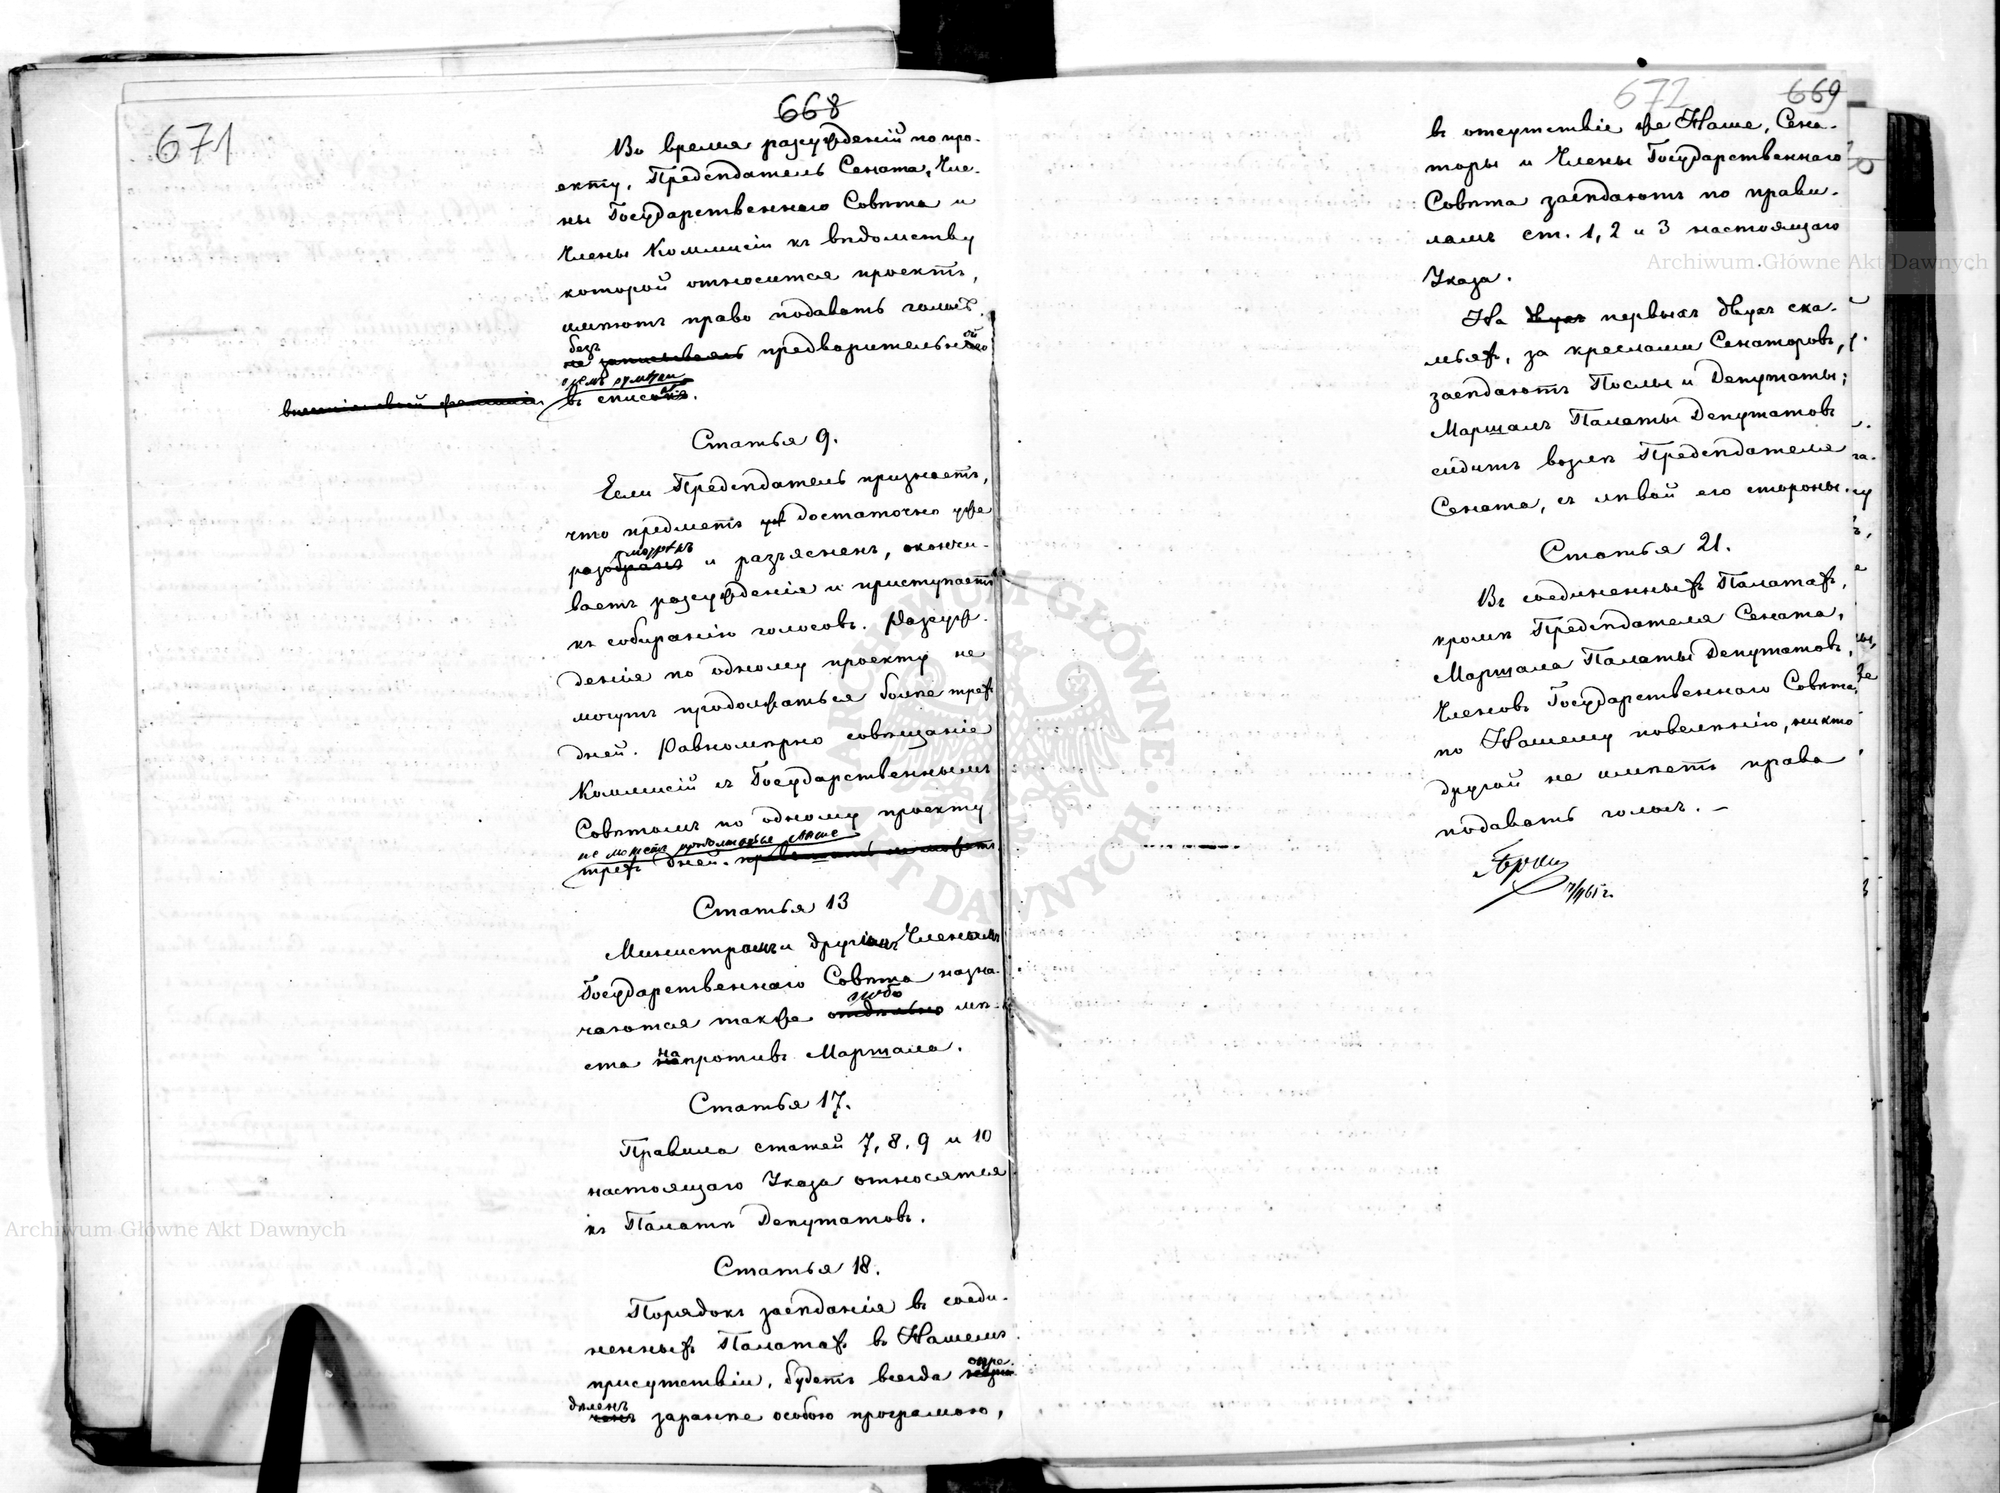 671
668
Во время разсужденій по про-
екту, Предсѣдатель Сената, Чле-
ны Государственнаго Совѣта и
Члены Коммисіи къ вѣдомству
которой относится проектъ,
имѣютъ право подавать голосъ
безъ
не записываясь предварительно
въ списокъ.
Статья 9.
Если Предсѣдатель признаетъ,
что предметъ достаточно уже
разсмотрѣнъ
разобранъ и разъясненъ, оканчи-
ваетъ разсужденія и приступаетъ
къ собиранію голосовъ. Разсуж-
денія по одному проекту не
могутъ продолжаться болѣе трехъ
дней. Равномѣрно совѣщаніе
Коммисій съ Государственнымъ
Совѣтомъ по одному проекту
не можетъ продолжаться свыше
трехъ дней.
Статья 13
Министрамъ и другимъ Членамъ
Государственнаго Совѣта назна-
чаются также особо отдѣльно мѣ-
ста напротивъ Маршала.
Статья 17.
Правила статей 7, 8, 9 и 10
настоящаго Указа относятся
къ Палатѣ Депутатовъ.
Статья 18.
Порядокъ засѣданія въ соеди-
ненныхъ Палатахъ въ Нашемъ
присутствіи, будетъ всегда опре-
дѣленъ заранѣе особою програмою,
672
669
въ отсутствіе же Наше, Сена-
торы и Члены Государственнаго
Совѣта засѣдаютъ по прави-
ламъ ст. 1, 2 и 3 настоящаго
Указа.
На двухъ первыхъ двухъ ска-
мьяхъ, за креслами Сенаторовъ,
засѣдаютъ Послы и Депутаты;
Маршалъ Палаты Депутатовъ
сидитъ возлѣ Предсѣдателя
Сената, съ лѣвой его стороны.
Статья 21.
Въ соединенныхъ Палатахъ,
кромѣ Предсѣдателя Сената,
Маршала Палаты Депутатовъ,
Членовъ Государственнаго Совѣта,
по Нашему повелѣнію, никто
другой не имѣетъ права
подавать голосъ. —
Archiwum Główne Akt Dawnych
Archiwum Główne Akt Dawnych
ARCHIWUM GŁÓWNE AKT DAWNYCH